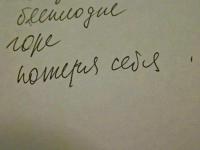 бесплодие
горе
потеря себя